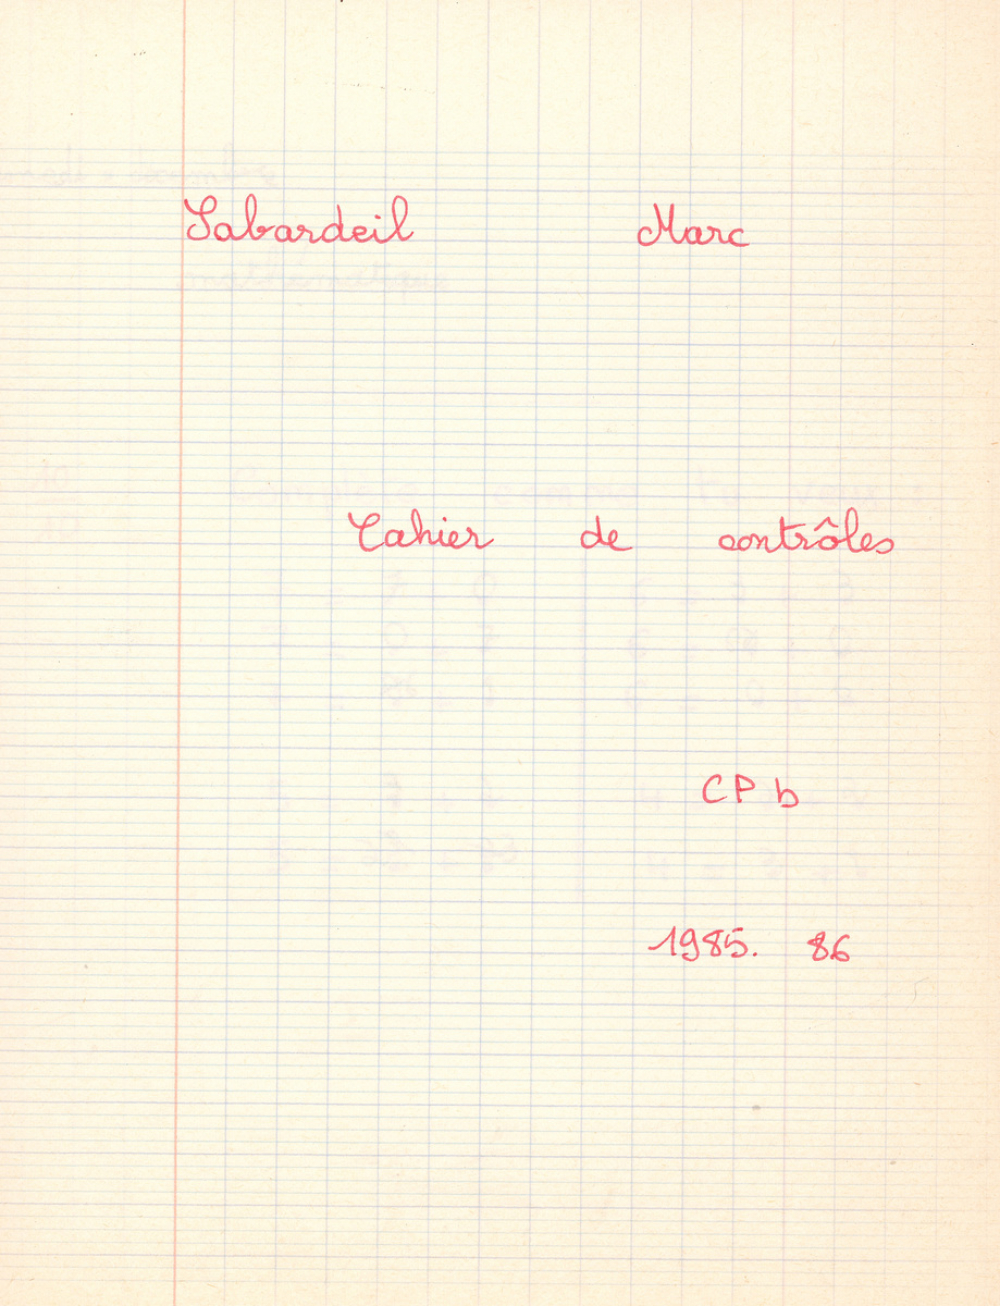 Sabardeil Marc
Cahier de contrôles
CP b
1985. 86